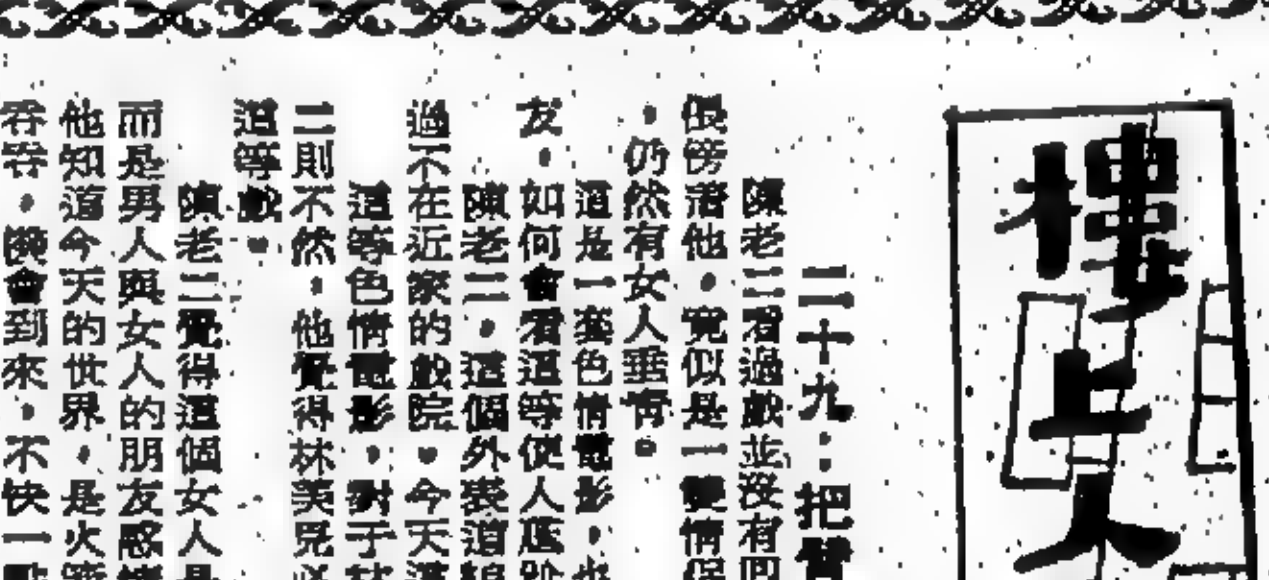 樓上人
二十九：把臂
陳老二看過戲並沒有回
偎傍著他，竟似是一雙情侶
，仍然有女人垂青。
這是一套色情電影，也
友，如何會看這等使人尷尬
陳老二，這個外表道貌
過不在近家的戲院，今天這
這等色情電影，對于林
二則不然，他覺得林美兒必
這等戲。
陳老二覺得這個女人是
而是男人與女人的朋友感情
他知道今天的世界，是火箭
吞吞，機會到來，不快一點